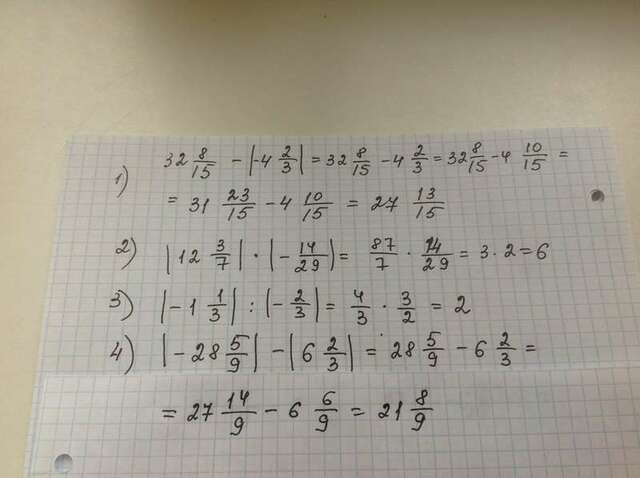 1) 32 8/15 - |-4 2/3| = 32 8/15 - 4 2/3 = 32 8/15 - 4 10/15 =
= 31 23/15 - 4 10/15 = 27 13/15
2) |12 3/7| · |- 14/29| = 87/7 · 14/29 = 3 · 2 = 6
3) |-1 1/3| : |- 2/3| = 4/3 · 3/2 = 2
4) |-28 5/9| - |6 2/3| = 28 5/9 - 6 2/3 =
= 27 14/9 - 6 6/9 = 21 8/9